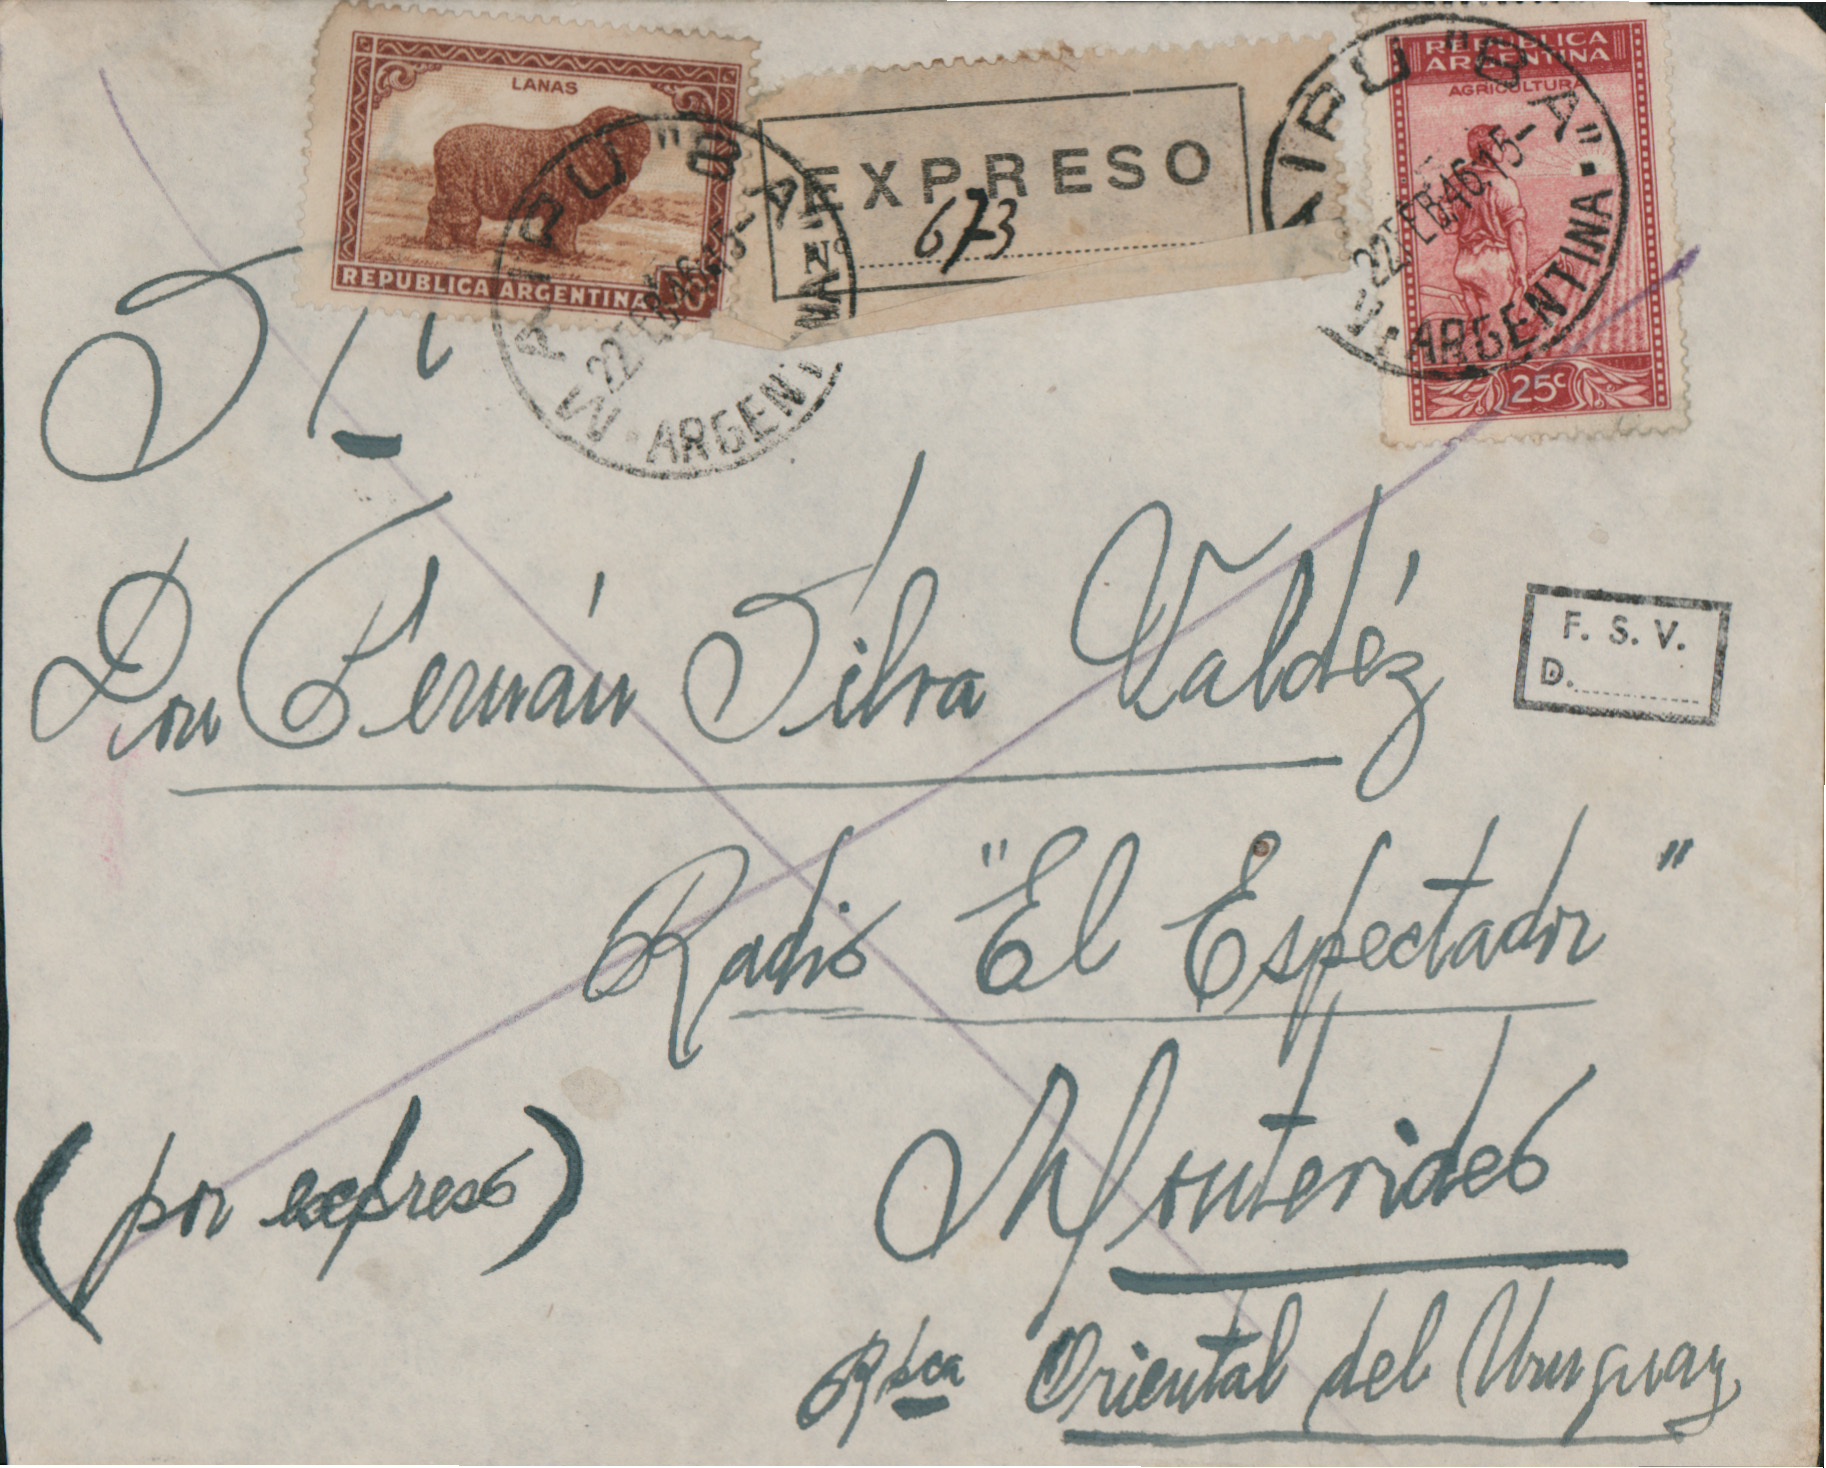 LANAS
REPUBLICA ARGENTINA
MAIPU "B A" 22 FEB 46 15- ARGENTINA
EXPRESO
Nº 673
REPUBLICA
ARGENTINA
AGRICULTURA
25c
MAIPU "B A" 22 FEB 46 15- ARGENTINA
Sr.
Don Fernán Silva Valdéz
F. S. V.
D.
Radio "El Espectador"
(por expreso)
Montevideo
Rpbca Oriental del Uruguay